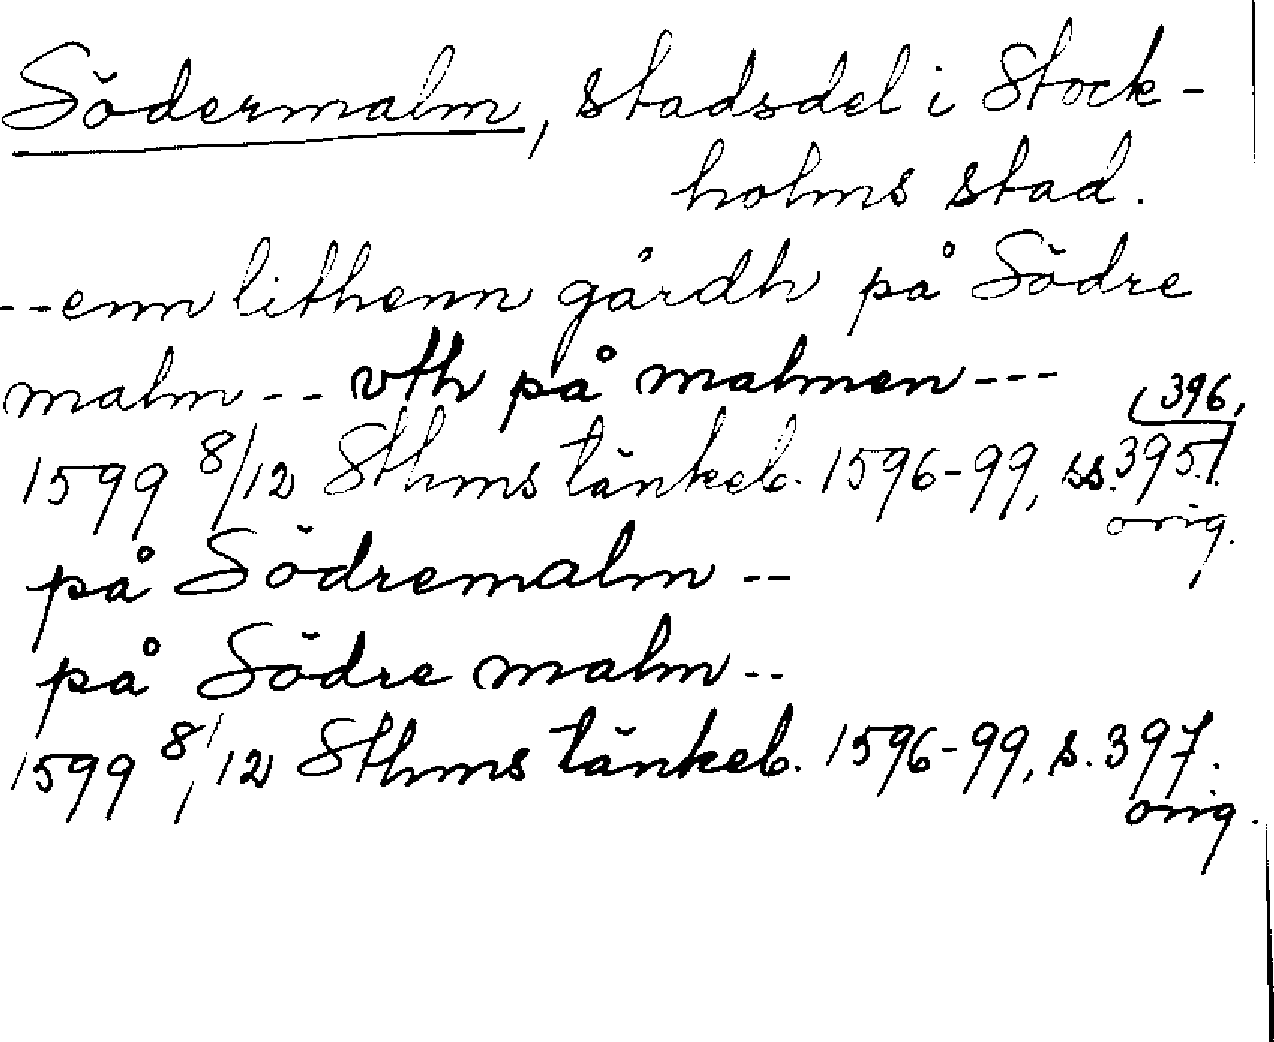 Södermalm, stadsdel i Stock-
holms stad.
--enn lithenn gårdh på Södre
malm -- vth på malmen ---
(396,
1599 8/12 Sthms tänkeb. 1596-99, ss. 395.
orig.
på Södremalm --
på Södre malm --
1599 8/12 Sthms tänkeb. 1596-99, s. 397.
orig.